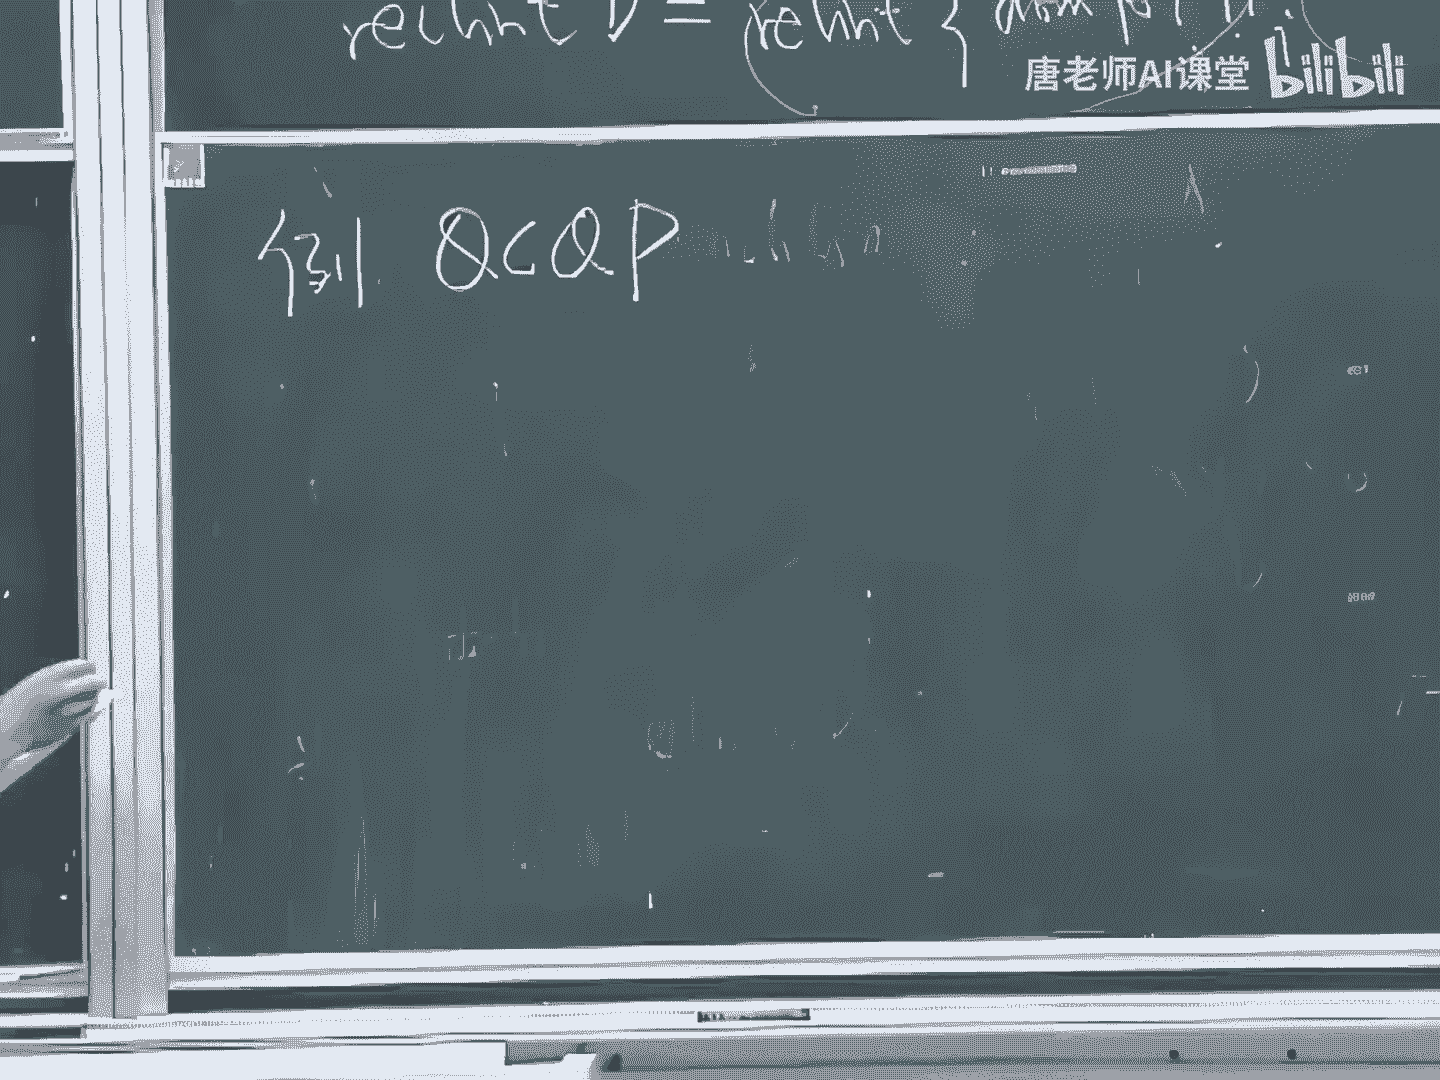 relint D = relint {
唐老师AI课堂 bilibili
例 QCQP